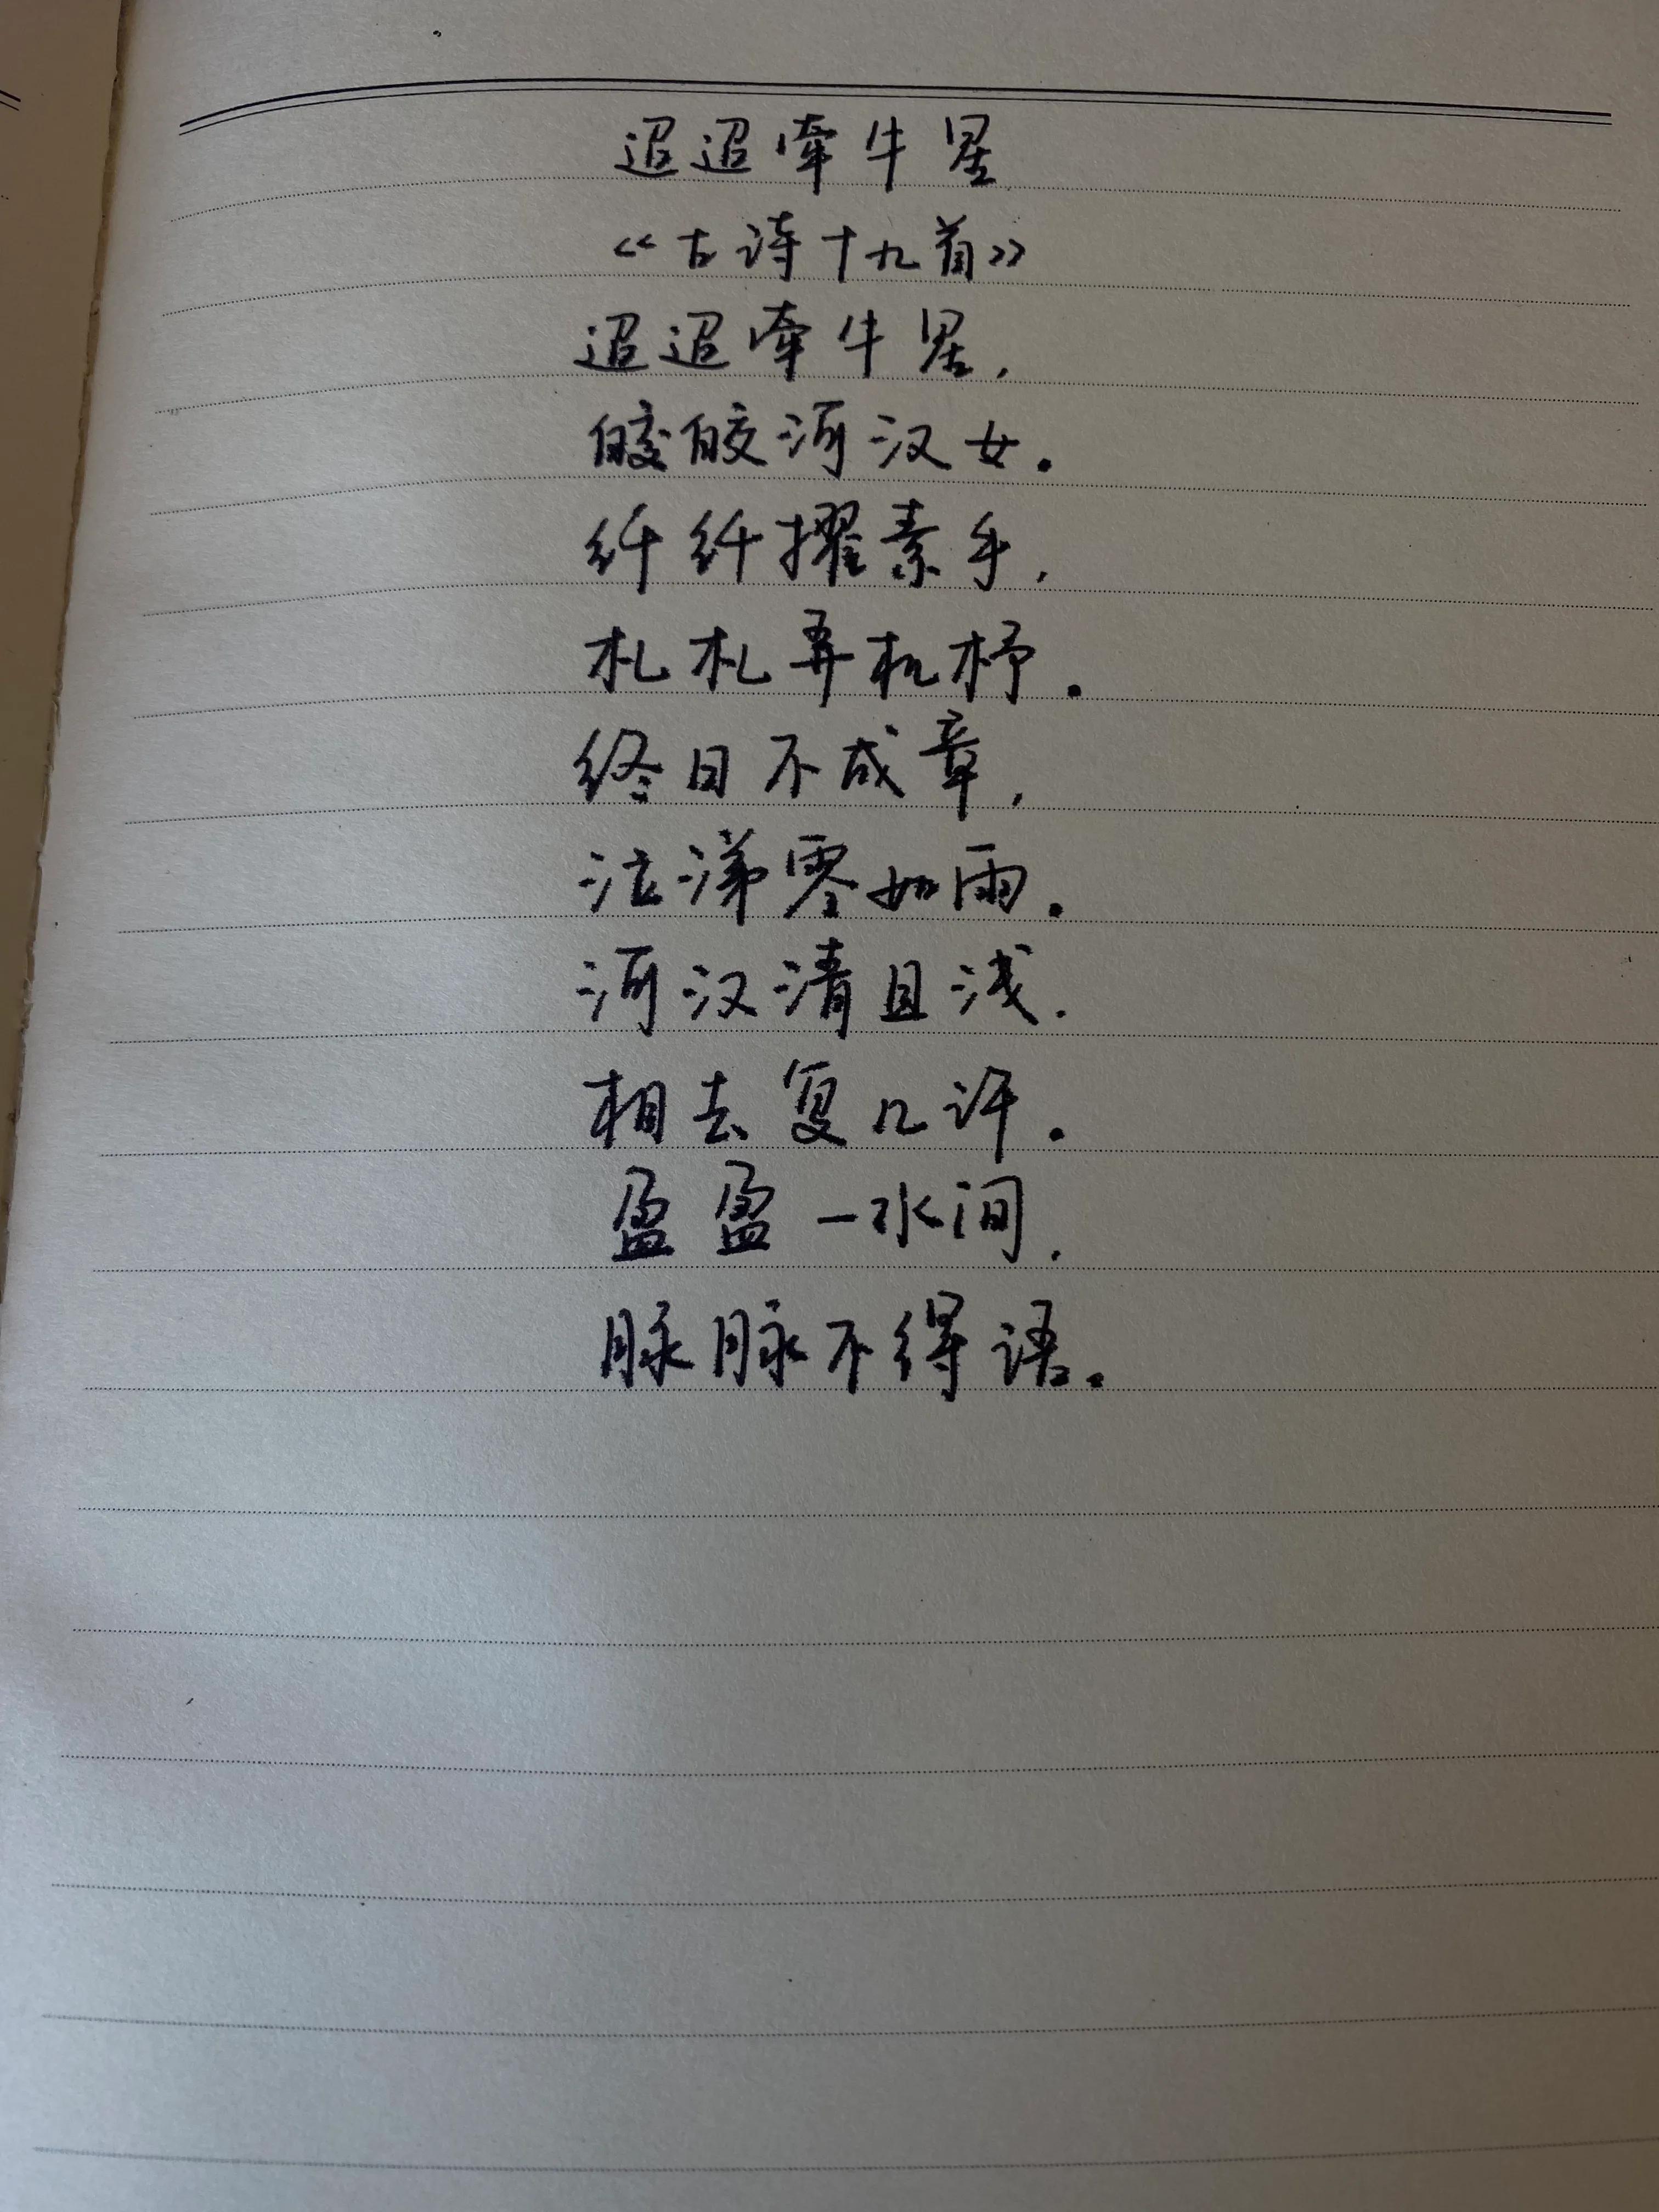 迢迢牵牛星
《古诗十九首》
迢迢牵牛星，
皎皎河汉女。
纤纤擢素手，
札札弄机杼。
终日不成章，
泣涕零如雨。
河汉清且浅，
相去复几许。
盈盈一水间，
脉脉不得语。